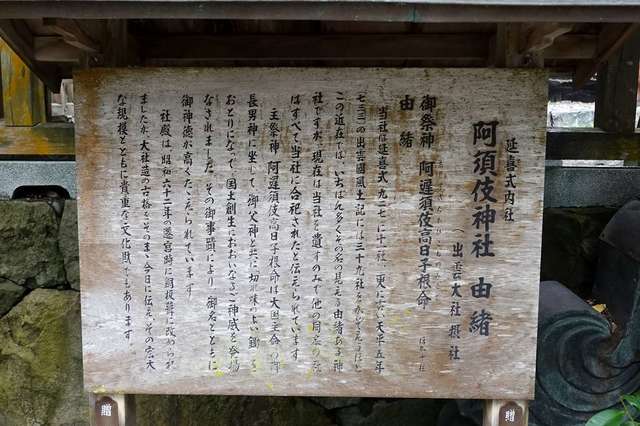 延喜式内社
阿須伎神社 由緒
（出雲大社 摂社
御祭神 阿遅須伎高日子根命
由緒
当社は延喜式（九二七）に十一社、更に古い天平五年
（七三三）の出雲國風土記には三十九社と
この近在では、いちばん多くその名の見える由緒ある神
社ですが、現在は当社を遺すのみで他の同名の
はすべて当社に合祀されたと伝えられています。
主祭神 阿遅須伎高日子根命は大国主命の御
長男神に坐して、御父神と共に切れ味のよい鋤を
おとりになって、国土創生におおいなるご神威を発揚
なされました。その御事蹟により、御名とともに
御神徳が高くたたえられています。
社殿は昭和六十二年の遷宮時に銅板葺に改められ
ましたが、大社造の古格をそのまま今日に伝え、その宏大
な規模とともに貴重な文化財でもあります。
贈
贈